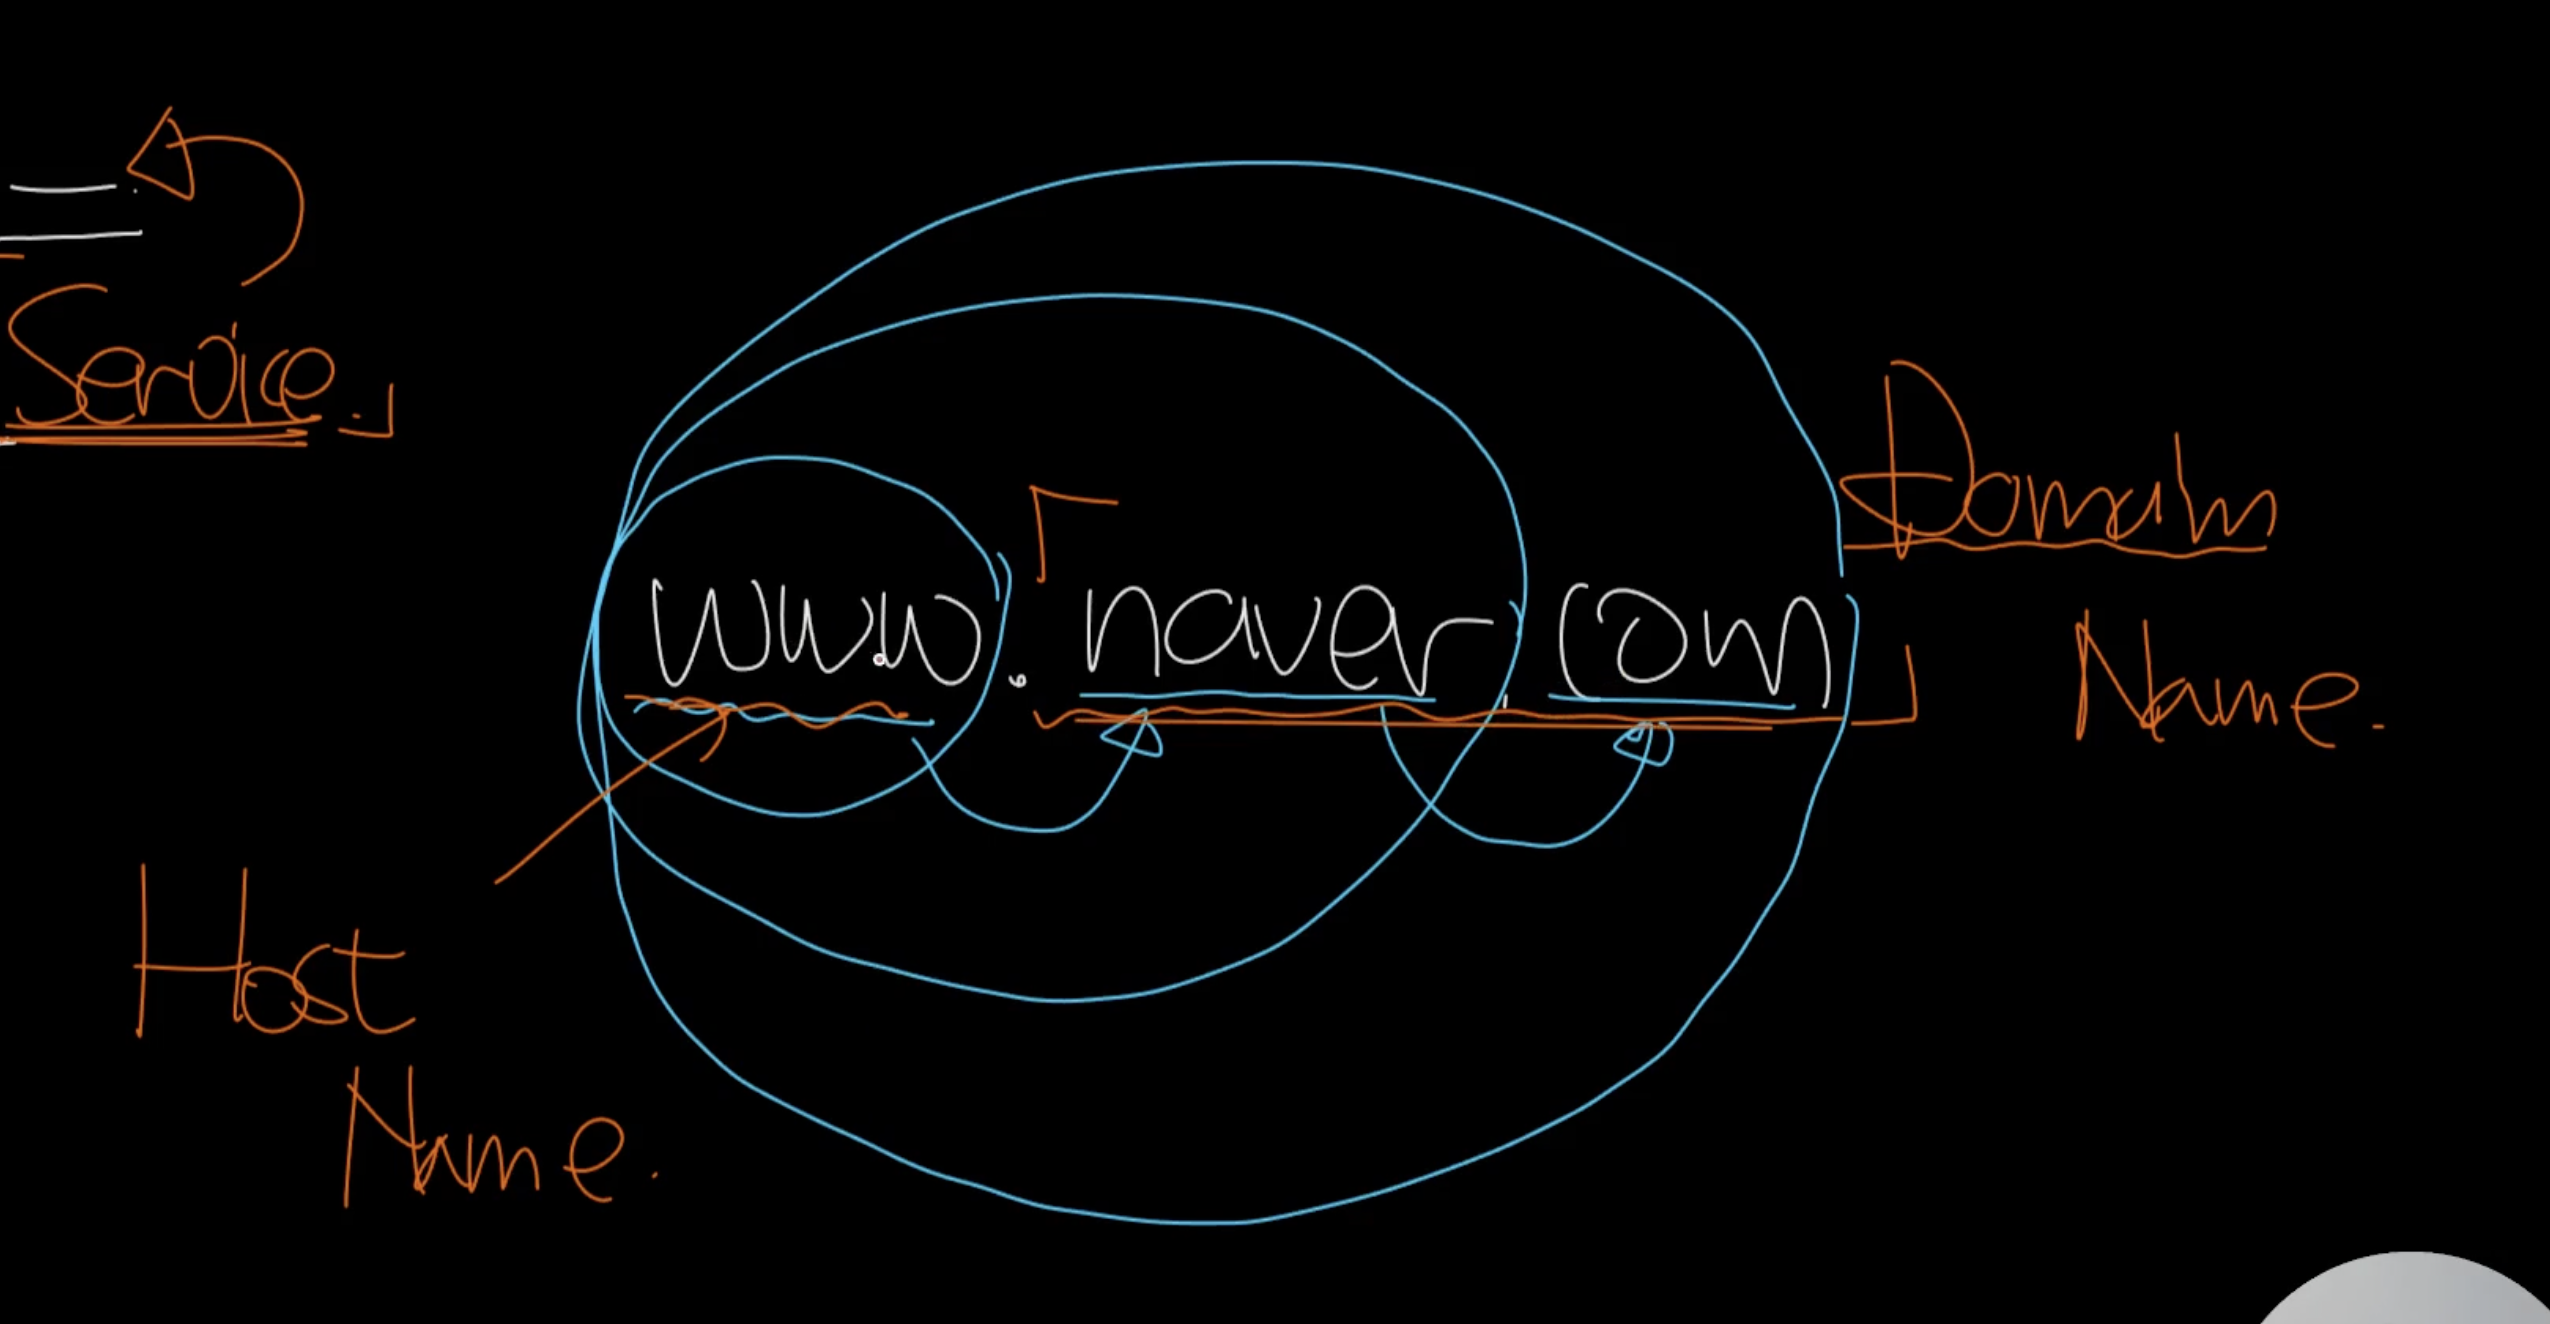 Service.
www.naver.com
Domain
Name.
Host
Name.